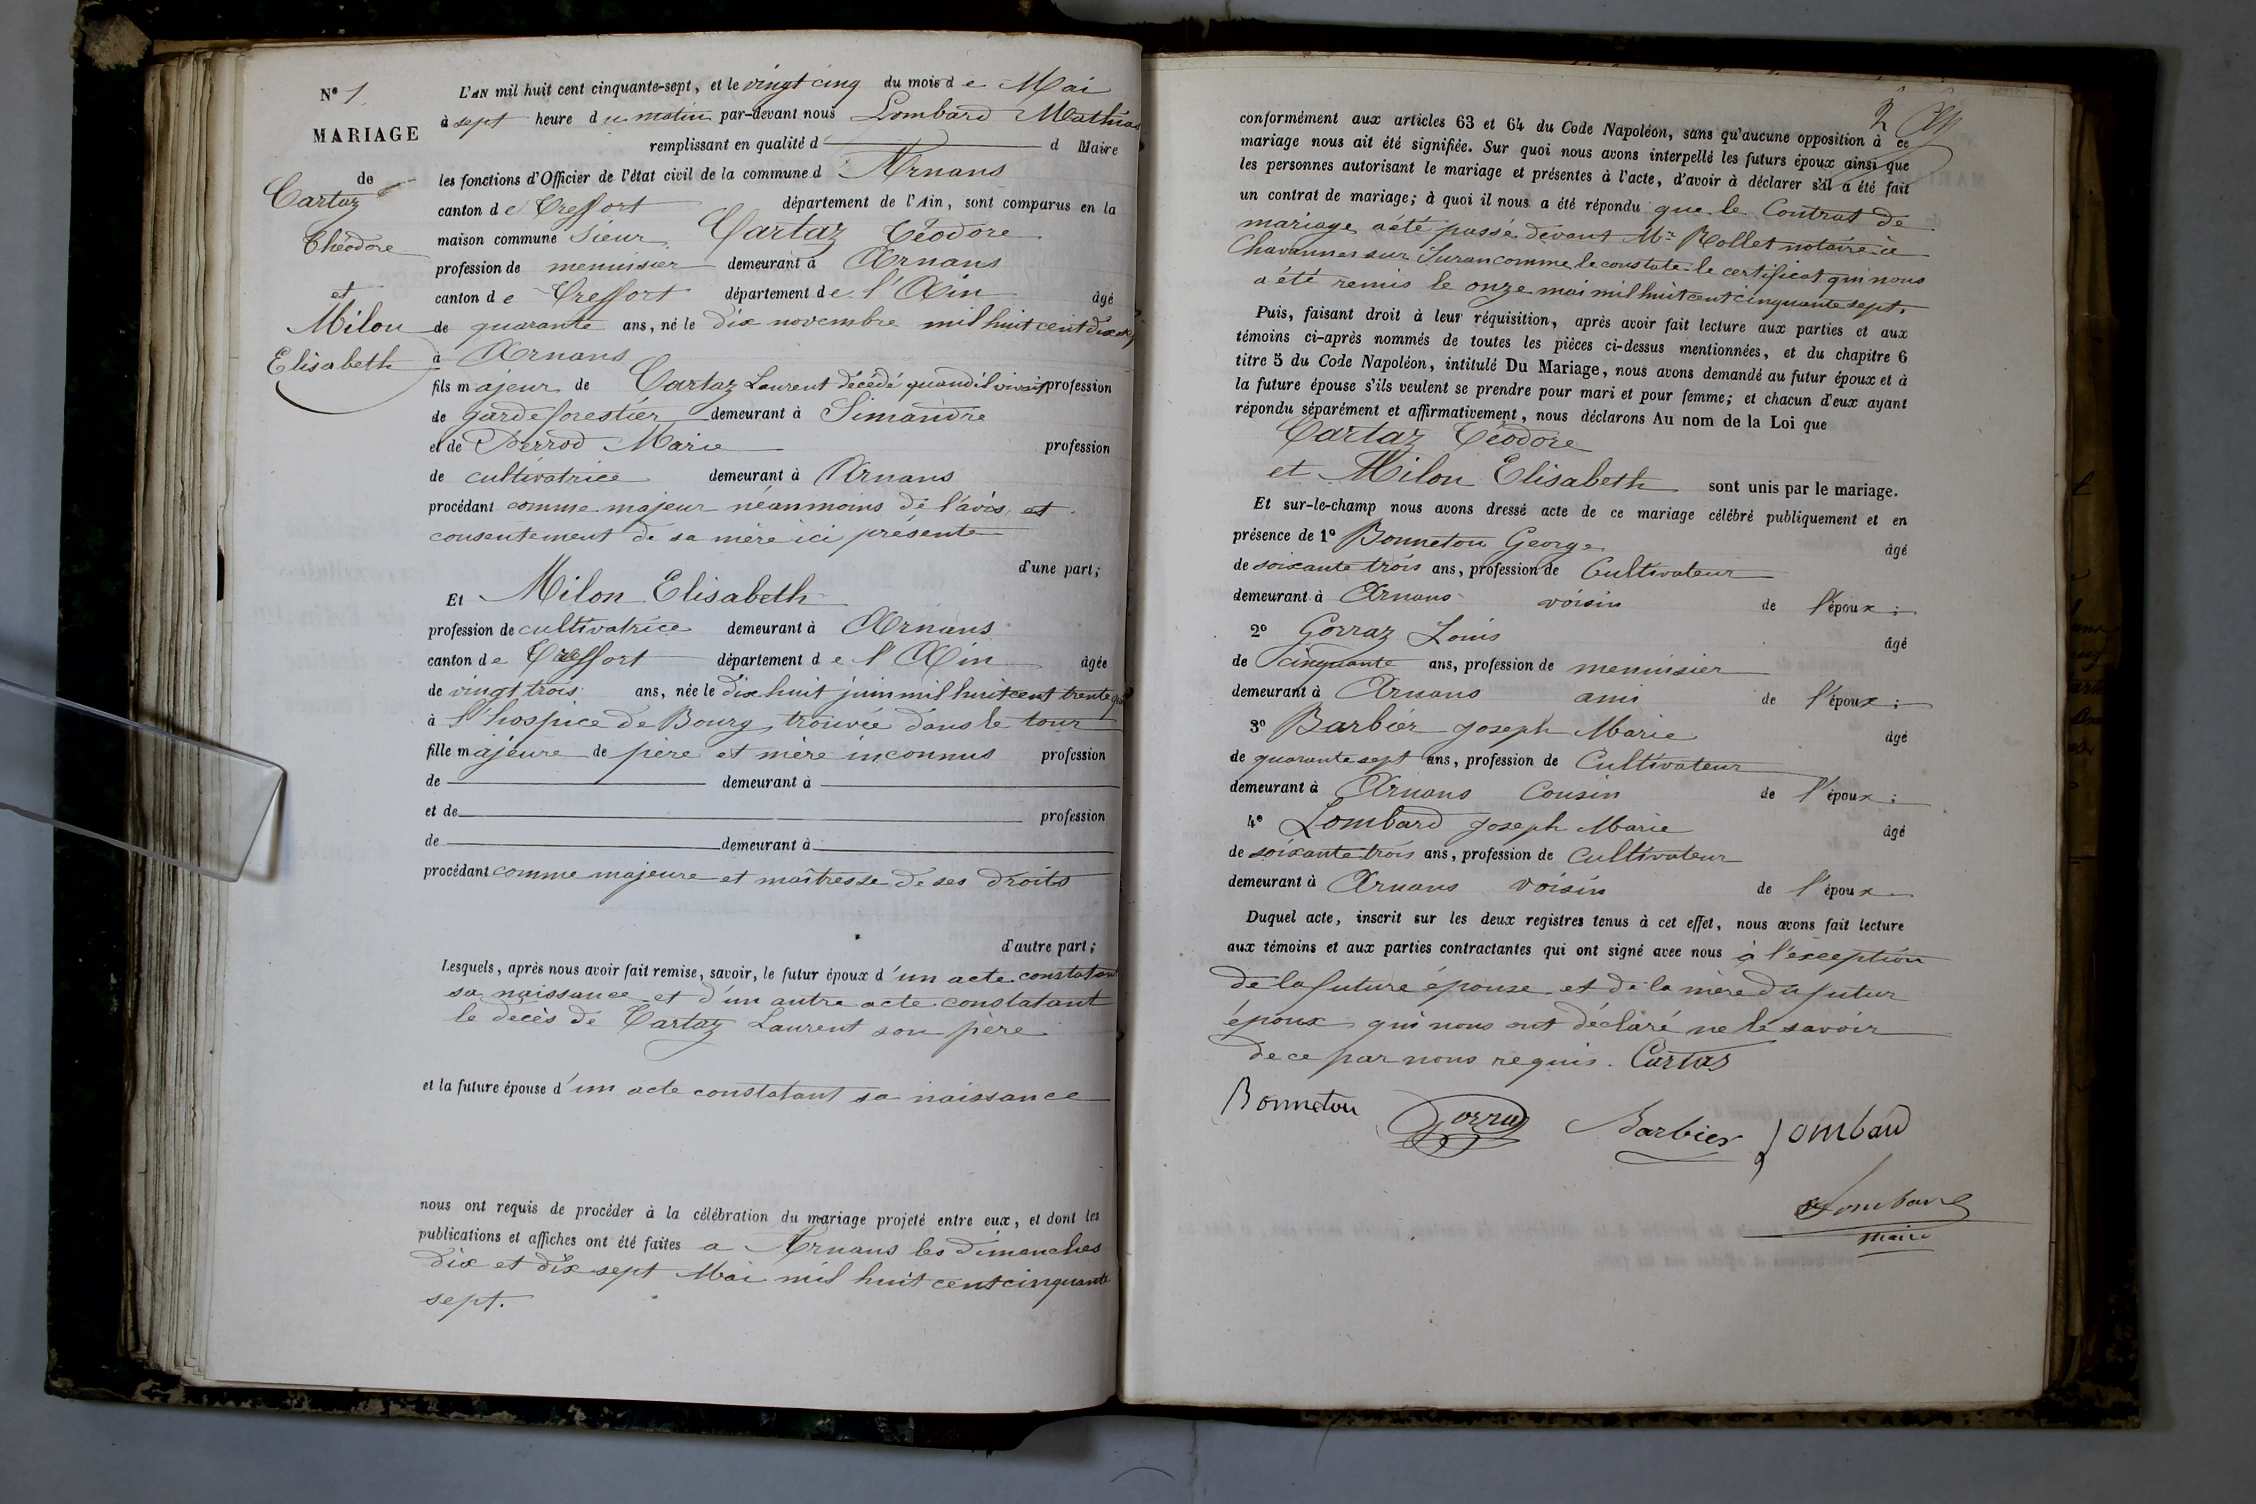 N° 1.
MARIAGE
de
Cartaz
Théodore
et
Milon
Elisabeth
L'AN mil huit cent cinquante-sept, et le vingt cinq du mois de Mai
à sept heure du matin par-devant nous Lombard Mathias
remplissant en qualité d d Maire
les fonctions d'Officier de l'état civil de la commune d Arnans
canton de Treffort département de l'Ain, sont comparus en la
maison commune Sieur Cartaz Téodore
profession de menuisier demeurant à Arnans
canton de Treffort département de l'Ain âgé
de quarante ans, né le dix novembre mil huit cent dix
à Arnans
fils majeur de Cartaz Laurent décédé quand il vivait profession
de garde forestier demeurant à Simandre
et de Perrod Marie profession
de cultivatrice demeurant à Arnans
procédant comme majeur néanmoins de l'avis et
consentement de sa mère ici présente
d'une part;
Et Milon Elisabeth
profession de cultivatrice demeurant à Arnans
canton de Treffort département de l'Ain âgée
de vingt trois ans, née le dix huit juin mil huit cent trente
à l'hospice de Bourg, trouvée dans le tour
fille majeure de père et mère inconnus profession
de demeurant à
et de profession
de demeurant à
procédant comme majeure et maîtresse de ses droits
d'autre part;
Lesquels, après nous avoir fait remise, savoir, le futur époux d'un acte constatant
sa naissance et d'un autre acte constatant
le décès de Cartaz Laurent son père
et la future épouse d'un acte constatant sa naissance
nous ont requis de procéder à la célébration du mariage projeté entre eux, et dont les
publications et affiches ont été faites a Arnans les dimanches
dix et dix sept Mai mil huit cent cinquante
sept.
2
conformément aux articles 63 et 64 du Code Napoléon, sans qu'aucune opposition à ce
mariage nous ait été signifiée. Sur quoi nous avons interpellé les futurs époux ainsi que
les personnes autorisant le mariage et présentes à l'acte, d'avoir à déclarer s'il a été fait
un contrat de mariage; à quoi il nous a été répondu que le Contrat de
mariage a été passé devant Mr Rollet notaire à
Chavannes sur Suran comme le constate le certificat qui nous
a été remis le onze mai mil huit cent cinquante sept.
Puis, faisant droit à leur réquisition, après avoir fait lecture aux parties et aux
témoins ci-après nommés de toutes les pièces ci-dessus mentionnées, et du chapitre 6
titre 5 du Code Napoléon, intitulé Du Mariage, nous avons demandé au futur époux et à
la future épouse s'ils veulent se prendre pour mari et pour femme; et chacun d'eux ayant
répondu séparément et affirmativement, nous déclarons Au nom de la Loi que
Cartaz Téodore
et Milon Elisabeth sont unis par le mariage.
Et sur-le-champ nous avons dressé acte de ce mariage célébré publiquement et en
présence de 1° Bonneton George âgé
de soixante trois ans, profession de Cultivateur
demeurant à Arnans voisin de l'époux;
2° Gorraz Louis âgé
de cinquante ans, profession de menuisier
demeurant à Arnans ami de l'époux;
3° Barbier Joseph Marie âgé
de quarante sept ans, profession de Cultivateur
demeurant à Arnans Cousin de l'époux;
4° Lombard Joseph Marie âgé
de soixante trois ans, profession de Cultivateur
demeurant à Arnans voisin de l'époux
Duquel acte, inscrit sur les deux registres tenus à cet effet, nous avons fait lecture
aux témoins et aux parties contractantes qui ont signé avec nous à l'exception
de la future épouse et de la mère du futur
époux qui nous ont déclaré ne le savoir
de ce par nous requis. Cartas
Bonneton Gorraz Barbier Lombard
Lombard
Maire